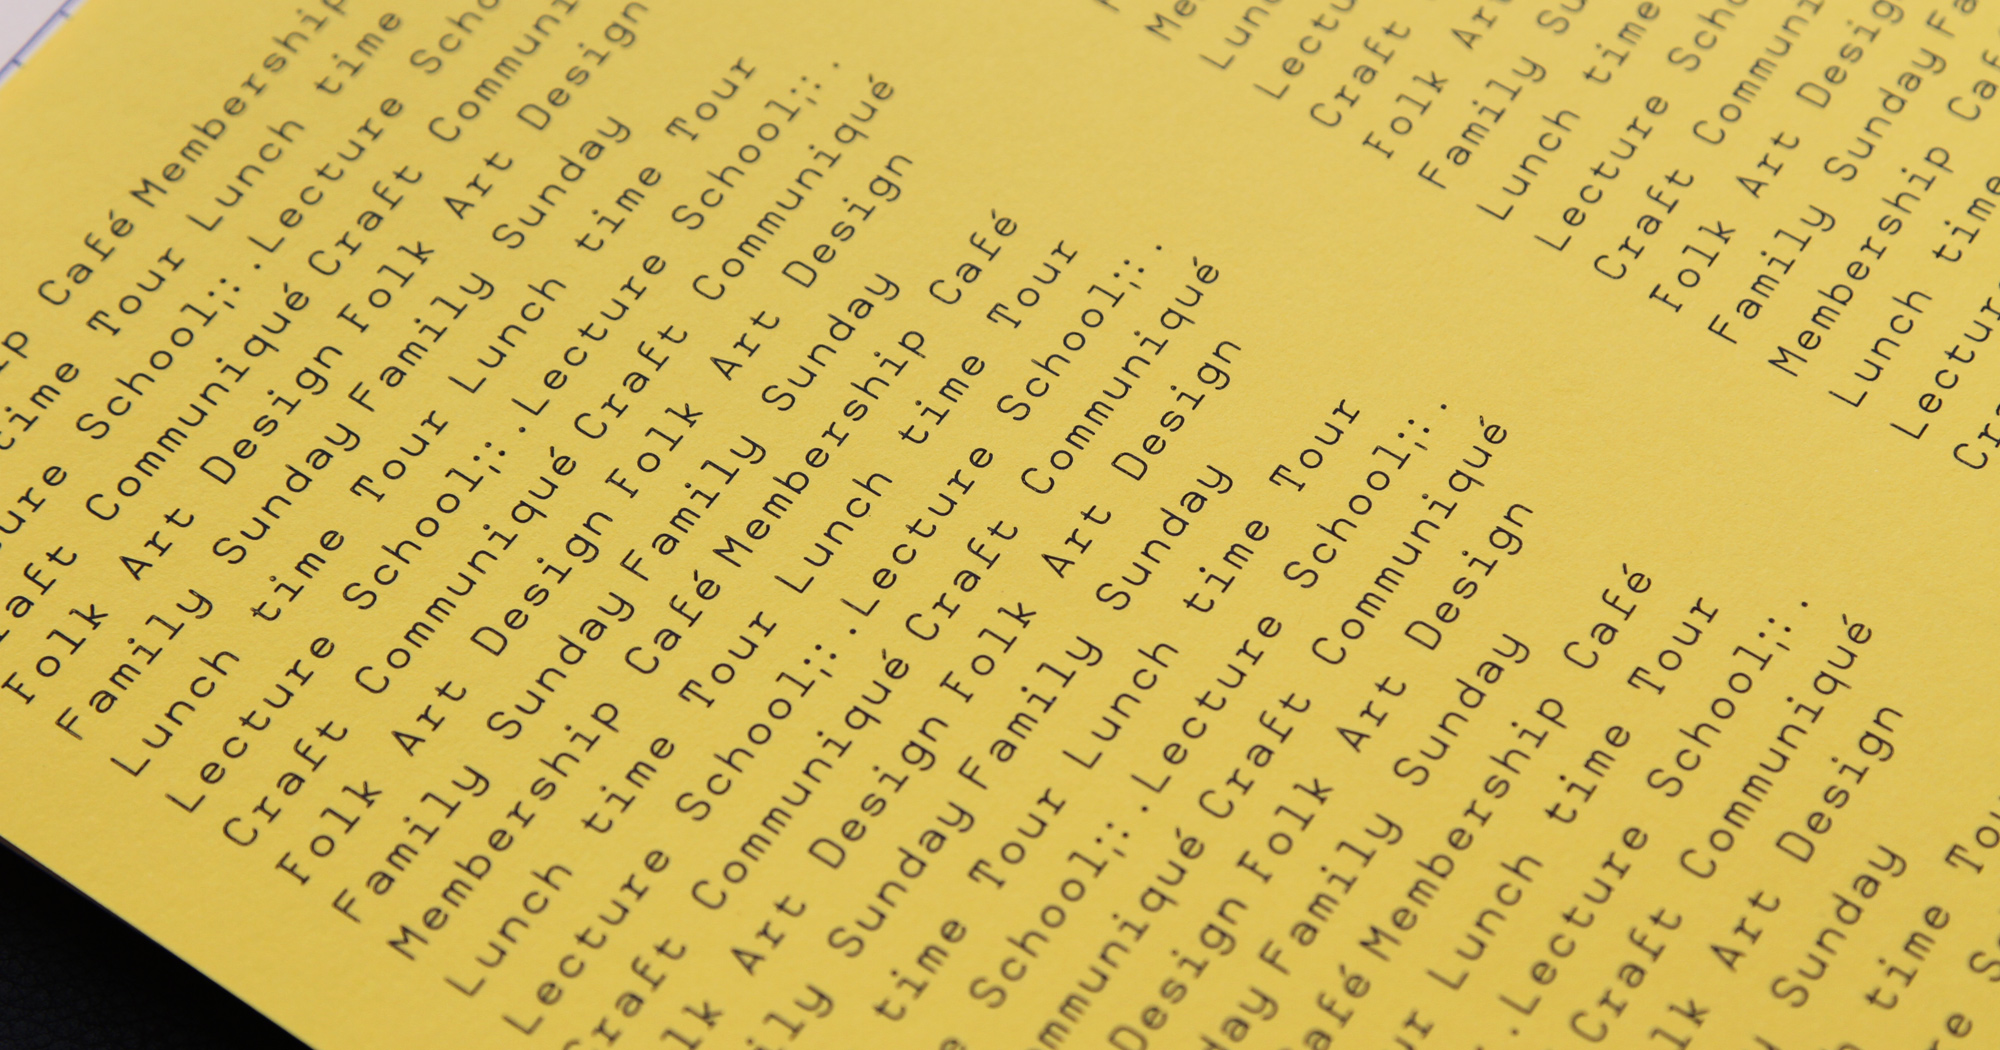 Café Membership
time Tour Lunch time
School;:.Lecture Scho
raft Communiqué Craft Communi
Folk Art Design Folk Art Design
Family Sunday Family Sunday
Lunch time Tour Lunch time Tour
Lecture School;:.Lecture School;:.
Craft Communiqué Craft Communiqué
Folk Art Design Folk Art Design
Family Sunday Family Sunday
Membership Café Membership Café
Lunch time Tour Lunch time Tour
Lecture School;:.Lecture School;:.
Craft Communiqué Craft Communiqué
lk Art Design Folk Art Design
ily Sunday Family Sunday
time Tour Lunch time Tour
School;:.Lecture School;:.
mmuniqué Craft Communiqué
Design Folk Art Design
day Family Sunday
Café Membership Café
ur Lunch time Tour
.Lecture School;:.
Craft Communiqué
lk Art Design
Sunday
time Tou
Me
Lun
Lectu
Craft
Folk Art
Family Su
Lunch time
Lecture Scho
Craft Communi
Folk Art Design
Family Sunday Fa
Membership Caf
Lunch time
Lectur
Cra